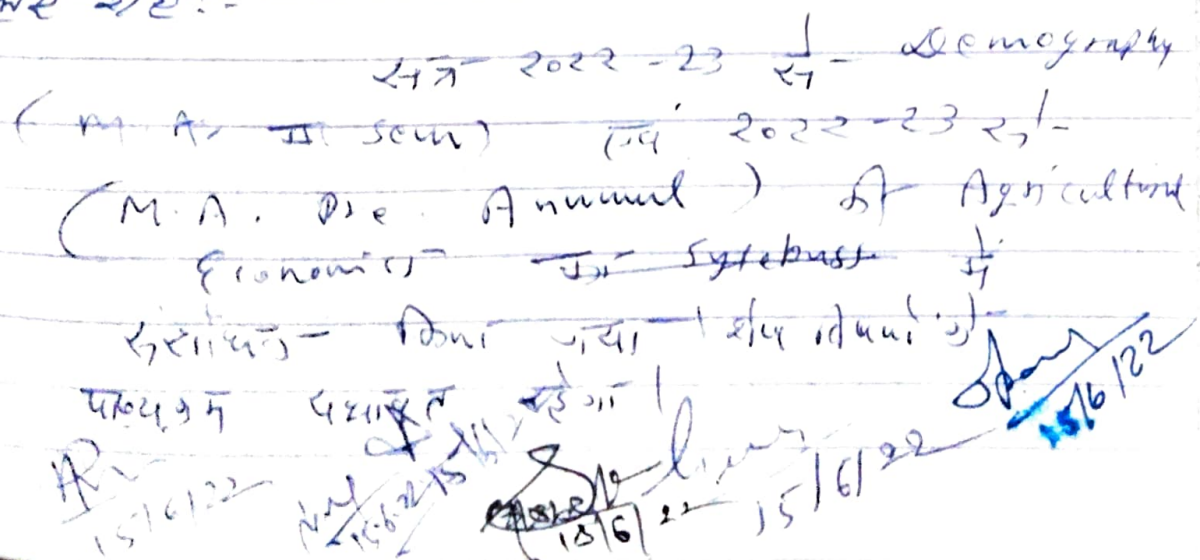 सत्र 2022-23 से Demography
(M.A. III Sem) एवं 2022-23 से
(M.A. Pre. Annual) की Agricultural
Economics का Syllebuss में
संशोधन किया गया। शेष विषयों के
पाठ्यक्रम यथावत रहेगा।
15/6/22
15/6/22
15.6.22
15/6/22
15/6/22